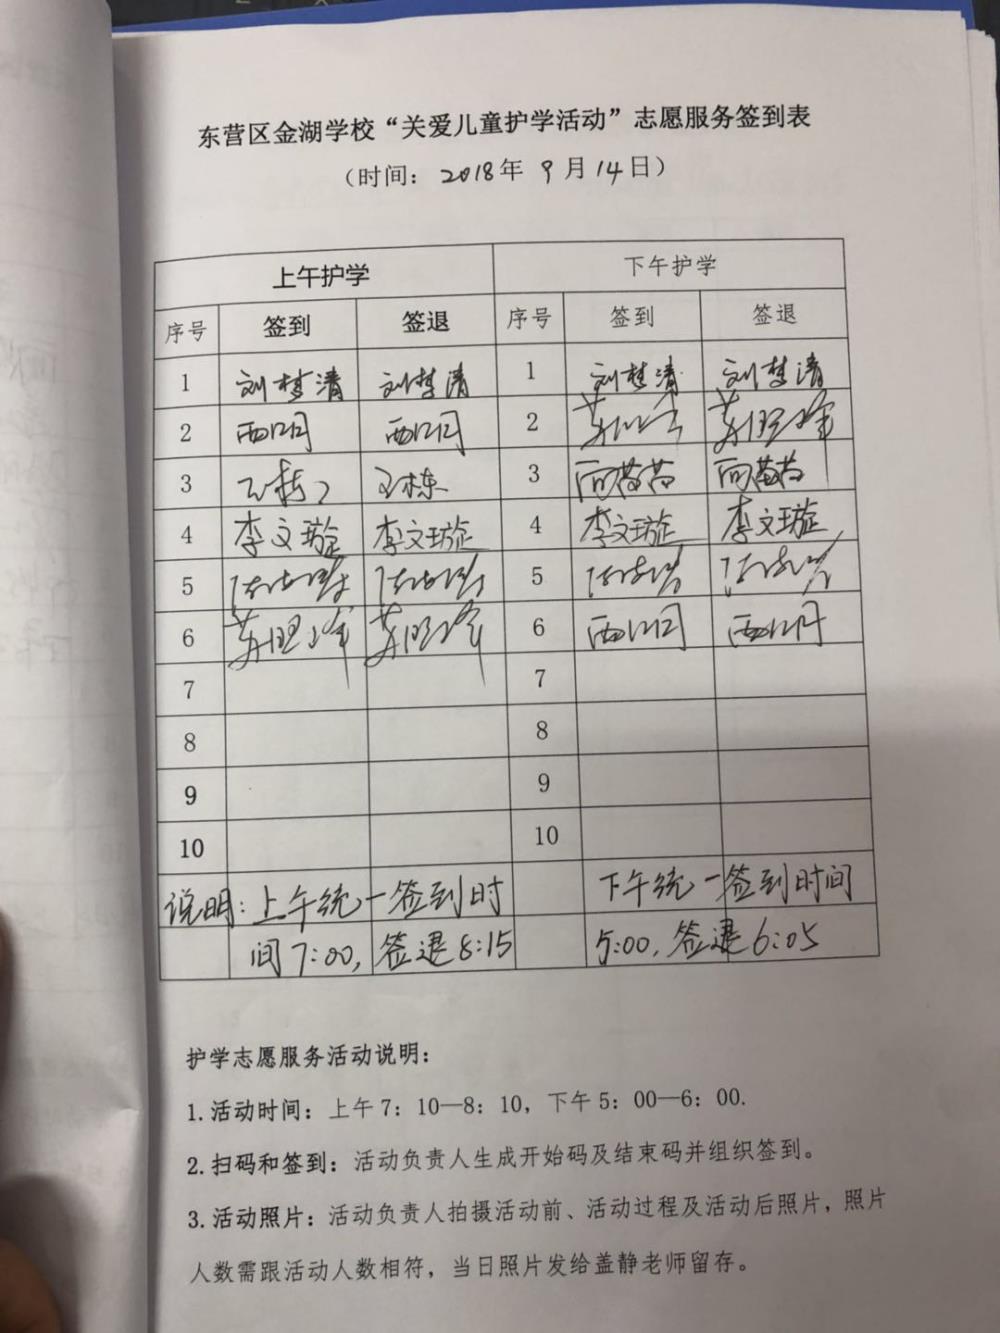 东营区金湖学校“关爱儿童护学活动”志愿服务签到表
（时间：2018年 9月14日）
上午护学 下午护学
序号 签到 签退 序号 签到 签退
1 刘梦清 刘梦清 1 刘梦清 刘梦清
2 2
3 王栋 3
4 李文璇 李文璇 4 李文璇 李文璇
5 5
6 6
7 7
8 8
9 9
10 10
说明：上午统一签到时 下午统一签到时间
间7:00，签退8:15 5:00，签退6:05
护学志愿服务活动说明：
1.活动时间：上午7：10—8：10，下午5：00—6：00.
2.扫码和签到：活动负责人生成开始码及结束码并组织签到。
3.活动照片：活动负责人拍摄活动前、活动过程及活动后照片，照片
人数需跟活动人数相符，当日照片发给盖静老师留存。